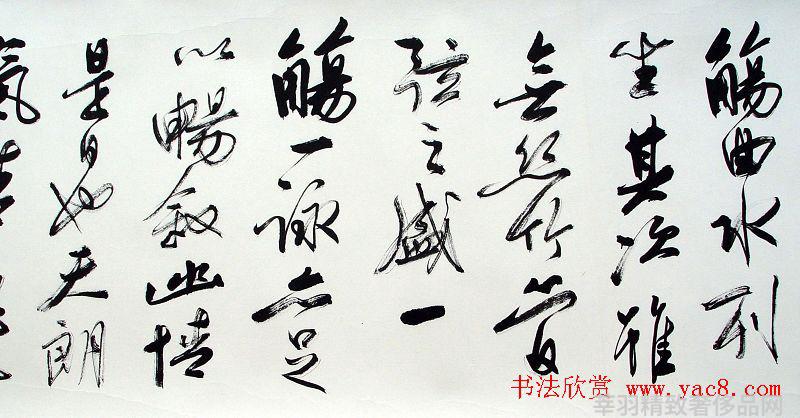 觴曲水列
坐其次雖
無絲竹管
弦之盛一
觴一詠亦足
以暢敘幽情
是日也天朗
氣清
书法欣赏 www.yac8.com
幸羽精致奢侈品网